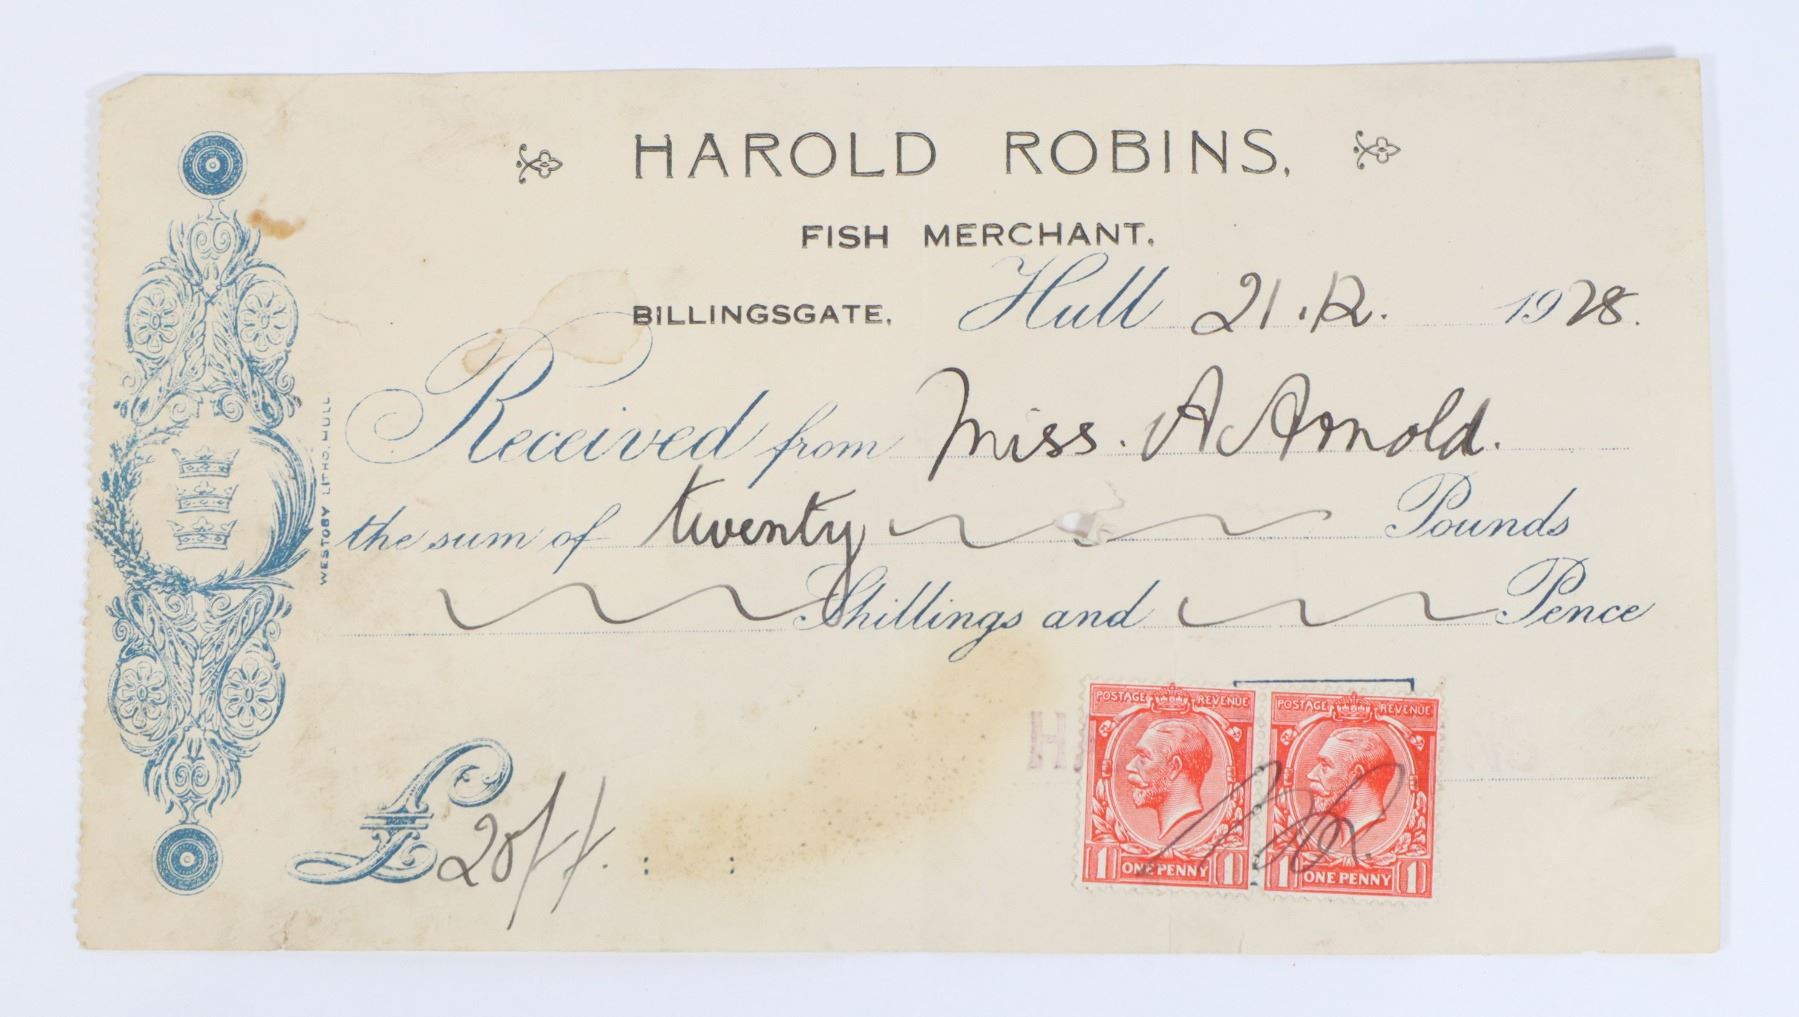 HAROLD ROBINS.
FISH MERCHANT.
BILLINGSGATE. Hull 21.12. 1928.
Received from Miss. A Arnold.
the sum of twenty Pounds
Shillings and Pence
WESTOBY LITHO. HULL
£20/ / . : :
POSTAGE REVENUE POSTAGE REVENUE
1 ONE PENNY 1 1 ONE PENNY 1